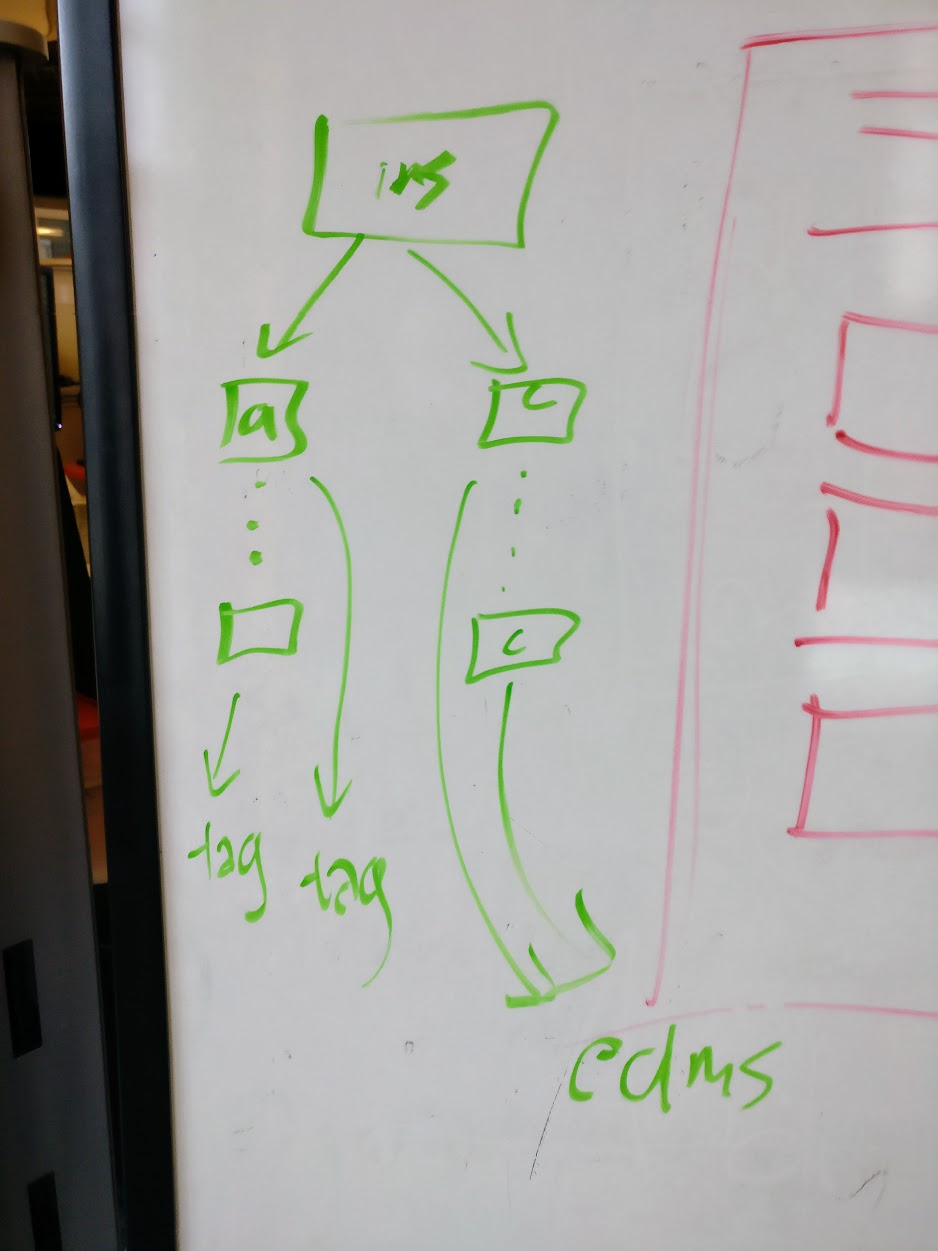 ims
a
c
c
tag
tag
edms